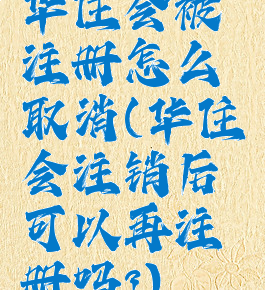 华住会被
注册怎么
取消(华住
会注销后
可以再注
册吗?)